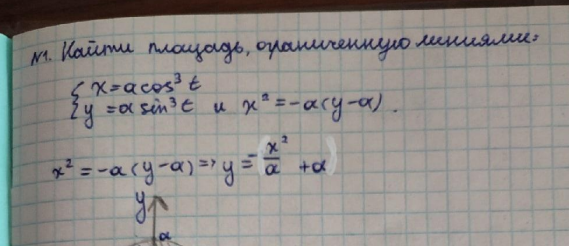 №1. Найти площадь, ограниченную линиями:
{ x = a cos³ t
{ y = a sin³ t и x² = -a(y-a).
x² = -a(y-a) => y = (-x²/a + a)
y
a